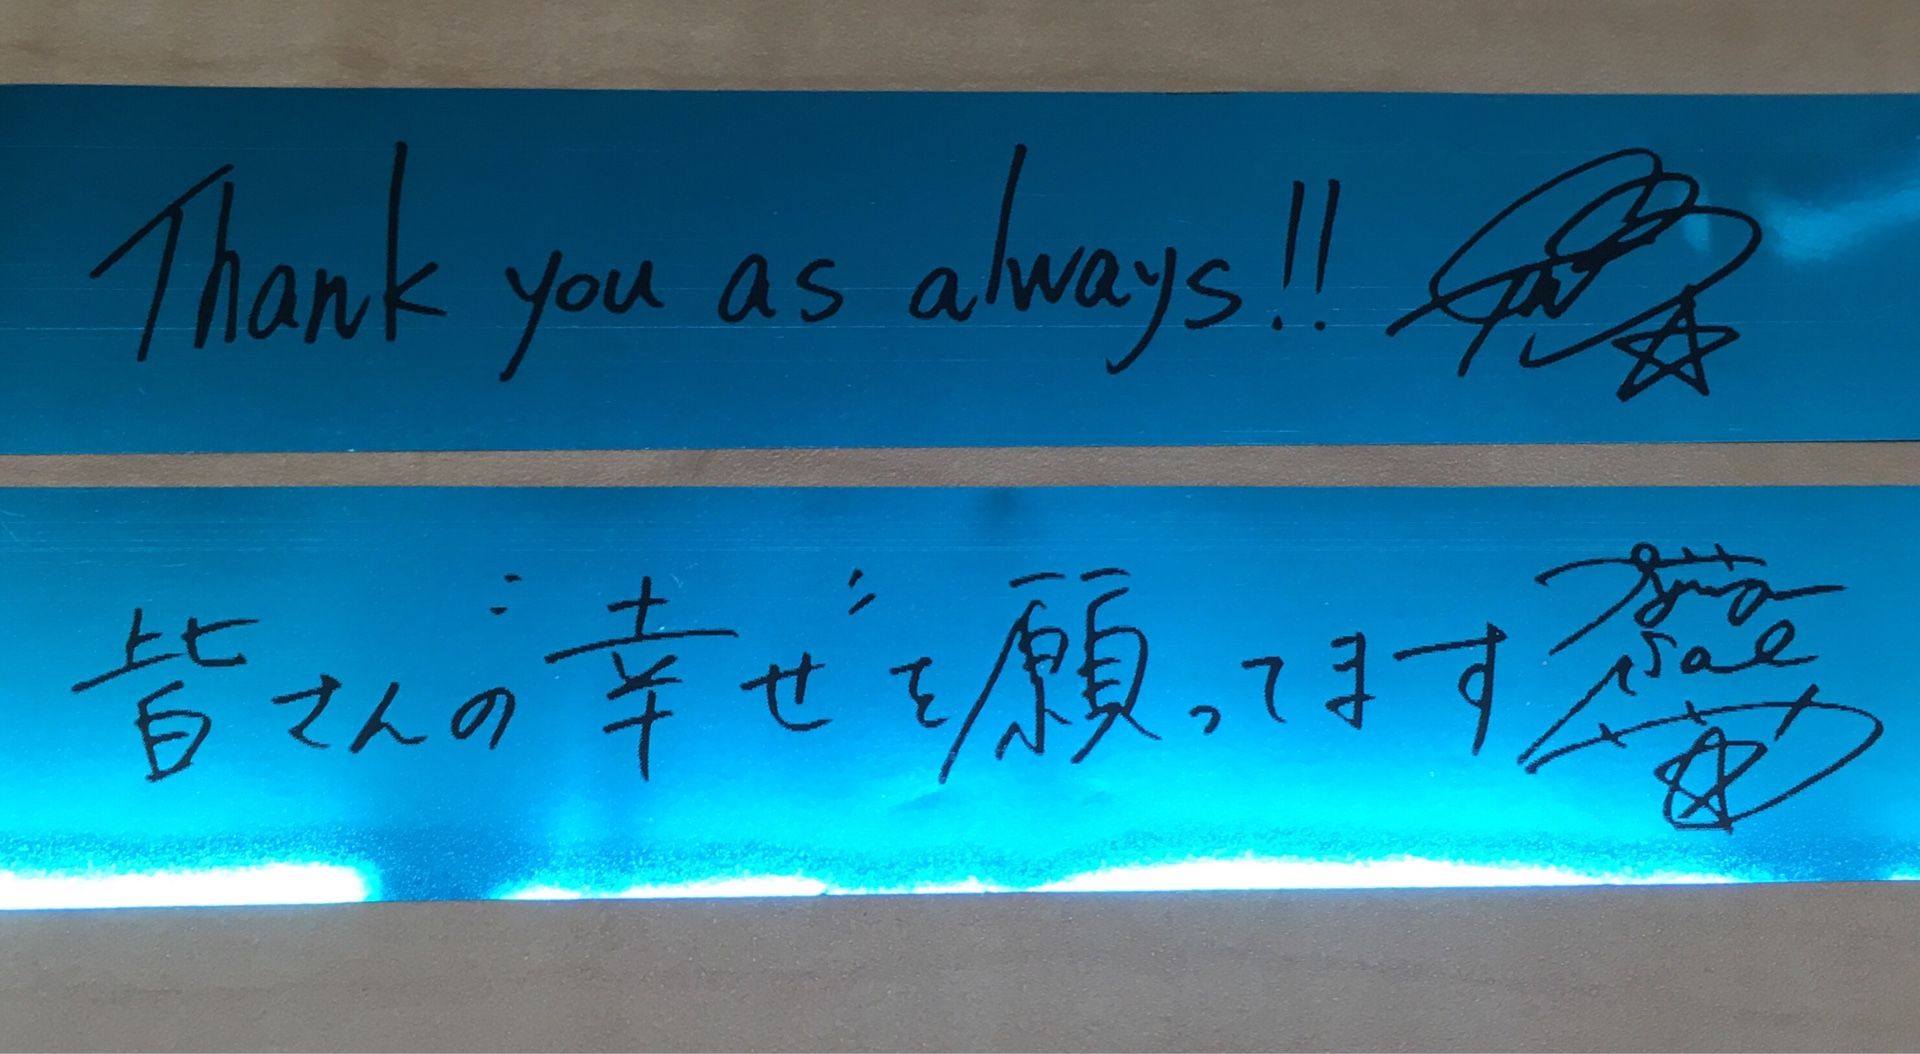 Thank you as always!!
皆さんの"幸せ"を願ってます